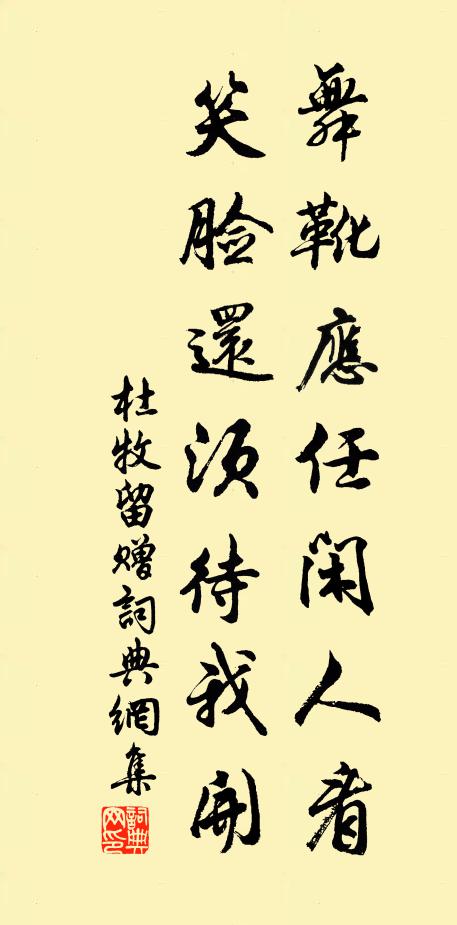 舞靴應任閑人看
笑臉還須待我開
杜牧留贈詞典網集
詞典网印